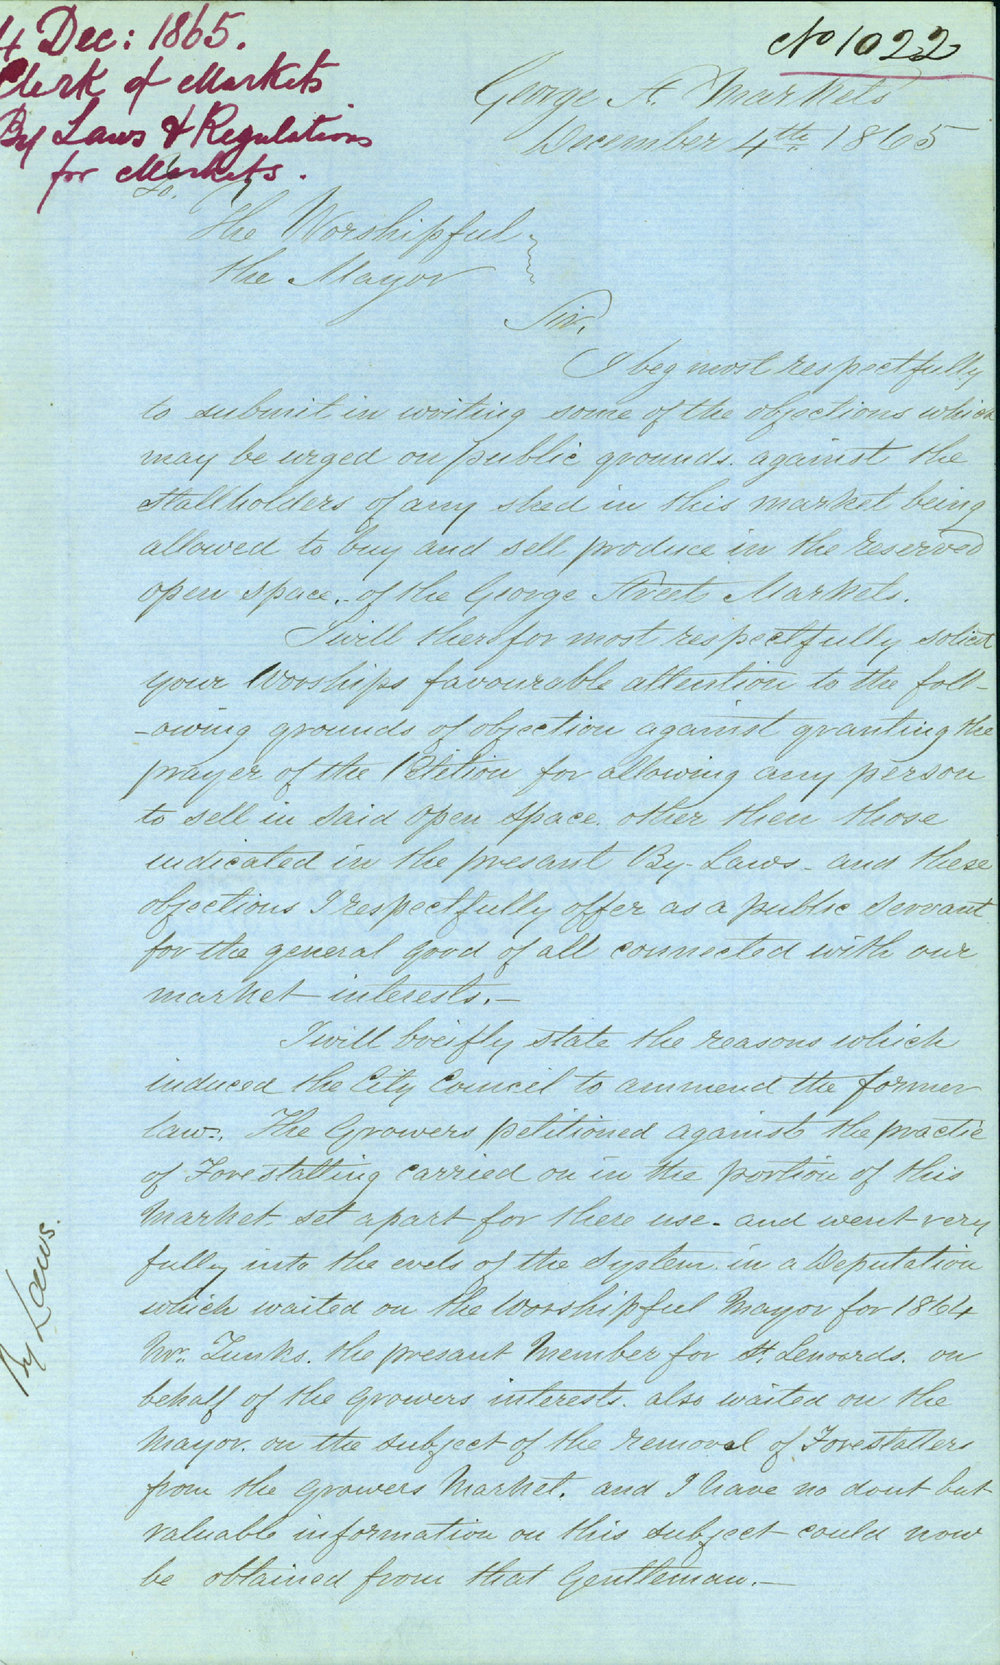 4 Dec: 1865.
Clerk of Markets
By Laws & Regulations
for Markets.
No 1022
George St. Markets
December 4th 1865
To,
The Worshipful
the Mayor
Sir,
I beg most respectfully
to submit in writing some of the objections which
may be urged on public grounds. against the
Stallholders of any shed in this market being
allowed to buy and sell produce in the reserved
open space. of the George Street Markets.
I will therefor most respectfully solicit
your Worships favourable attention to the foll-
-owing grounds of objection against granting the
prayer of the Petition for allowing any person
to sell in said open space. other then those
indicated in the presant By-Laws - and these
objections I respectfully offer as a public servant
for the general good of all connected with our
market interests.-
I will breifly state the reasons which
induced the City Council to ammend the former
law-. The Growers petitioned against the practic
of Forestalling carried on in the portion of this
Market set apart for there use. and went very
fully into the evels of the System. in a Deputation
which waited on the Worshipful Mayor for 1864
Mr. Tunks. the presant Member for St. Lenords. on
behalf of the growers interests. also waited on the
Mayor. on the subject of the removal of Forestallers
from the growers Market. and I have no dout but
valuable information on this subject could now
be obtained from that Gentleman.-
By Laws.